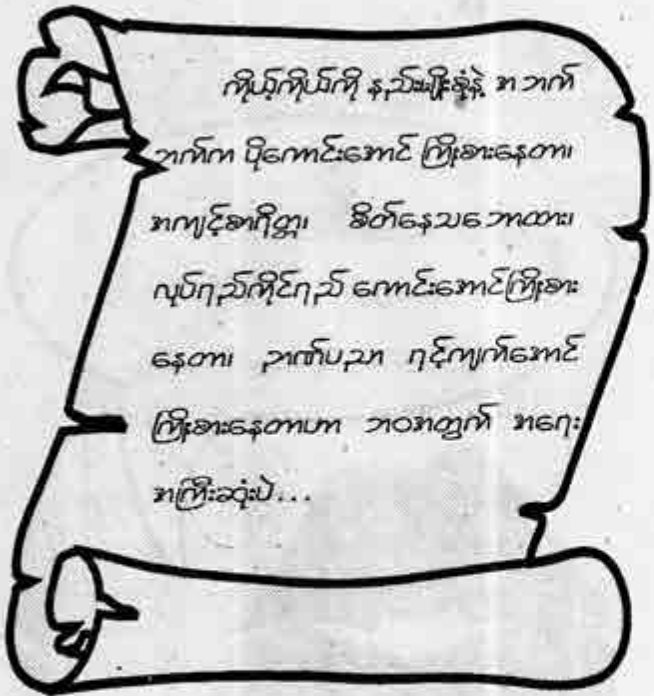 ကိုယ့်ကိုယ်ကို နည်းမျိုးစုံနဲ့ အဘက်
ဘက်က ပိုကောင်းအောင် ကြိုးစားနေတာ၊
အကျင့်စာရိတ္တ၊ စိတ်နေသဘောထား၊
လုပ်ရည်ကိုင်ရည် ကောင်းအောင်ကြိုးစား
နေတာ၊ ဉာဏ်ပညာ ရင့်ကျက်အောင်
ကြိုးစားနေတာဟာ ဘဝအတွက် အရေး
အကြီးဆုံးပဲ...